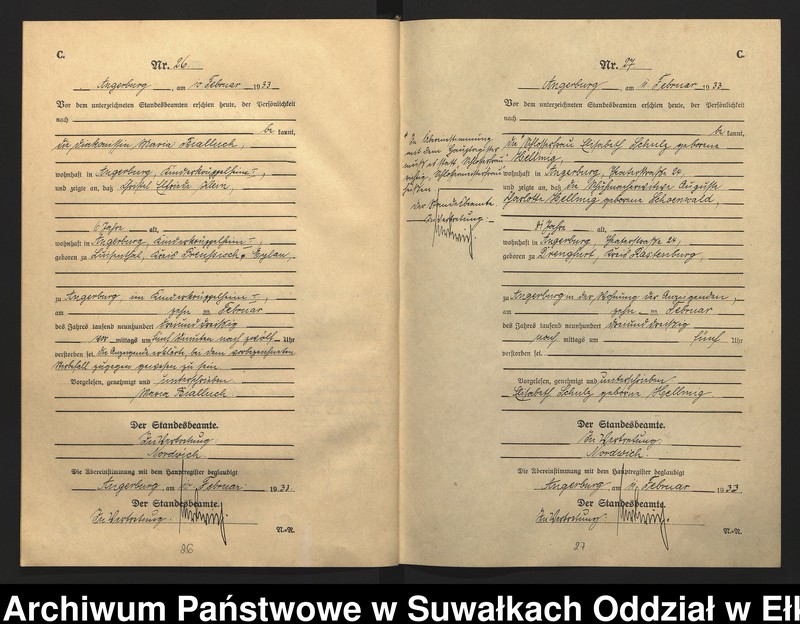 C.
Nr. 26.
Angerburg, am 10 Februar 1933
Vor dem unterzeichneten Standesbeamten erschien heute, der Persönlichkeit
nach
be kannt,
die Diakonissin Maria
wohnhaft in Angerburg, Kinderkrüppelheim,
und zeigte an, daß
Klein,
6 Jahre alt,
wohnhaft in Angerburg, Kinderkrüppelheim,
geboren zu Kreis Preussisch Eylau,
zu Angerburg, im Kinderkrüppelheim,
am zehn ten Februar
des Jahres tausend neunhundert dreiunddreißig
vor mittags um fünf Minuten nach zwölf Uhr
verstorben sei. Die Anzeigende erklärte, bei dem vorbezeichneten
Sterbefall zugegen gewesen zu sein.
Vorgelesen, genehmigt und unterschrieben
Maria
Der Standesbeamte.
In Vertretung.
Nordwich
Die Übereinstimmung mit dem Hauptregister beglaubigt
Angerburg, am 10. Februar 1933.
Der Standesbeamte.
In Vertretung.
N.-R.
26
C.
Nr. 27
Angerburg, am 11. Februar 1933
Vor dem unterzeichneten Standesbeamten erschien heute, der Persönlichkeit
nach
be kannt,
die Schlosserfrau Elisabeth Schulz geborene
Hellmig,
wohnhaft in Angerburg, Theaterstraße 24,
und zeigte an, daß die Schuhmacherwitwe Auguste
Charlotte Hellmig geborene Schoenwald,
Jahre alt,
wohnhaft in Angerburg, Theaterstraße 24,
geboren zu Drengfurt, Kreis Rastenburg,
zu Angerburg in der Wohnung der Anzeigenden,
am zehn ten Februar
des Jahres tausend neunhundert dreiunddreißig
nach mittags um fünf Uhr
verstorben sei.
Vorgelesen, genehmigt und unterschrieben
Elisabeth Schulz geborene Hellmig
Der Standesbeamte.
In Vertretung.
Nordwich.
Die Übereinstimmung mit dem Hauptregister beglaubigt
Angerburg, am 11. Februar 1933
Der Standesbeamte.
In Vertretung.
N.-R.
27
In Übereinstimmung
mit dem Hauptregister
muß es statt „Schlosserfrau“
richtig „Schlossermeisterfrau“
heißen.
Der Standesbeamte.
In Vertretung.
Archiwum Państwowe w Suwałkach Oddział w Ełk